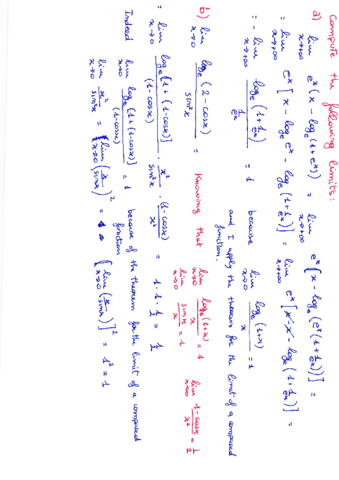 Compute the following limits:
a) lim x→+∞ e^x (x - log_e (1+e^x)) = lim x→+∞ e^x [x - log_e (e^x (1+1/e^x))] =
= lim x→+∞ e^x [x - log_e e^x - log_e (1+1/e^x)] = lim x→+∞ e^x [x - x - log_e (1+1/e^x)] =
= - lim x→+∞ log_e (1+1/e^x) / 1/e^x = 1 because lim x→0 log_e (1+x) / x = 1
and I apply the theorem for the limit of a composed
function.
b) lim x→0 log_e (2-cosx) / sin²x = Knowing that lim x→0 log_e (1+x) / x = 1 lim x→0 1-cosx / x² = 1/2
lim x→0 sinx / x = 1
= lim x→0 log_e [1+(1-cosx)] / (1-cosx) · x² / sin²x · (1-cosx) / x² = 1·1·1/2 = 1/2
Indeed lim x→0 log_e [1+(1-cosx)] / (1-cosx) = 1 because of the theorem for the limit of a composed
function
lim x→0 x² / sin²x = lim x→0 (x / sinx)² = [lim x→0 (x / sinx)]² = 1² = 1